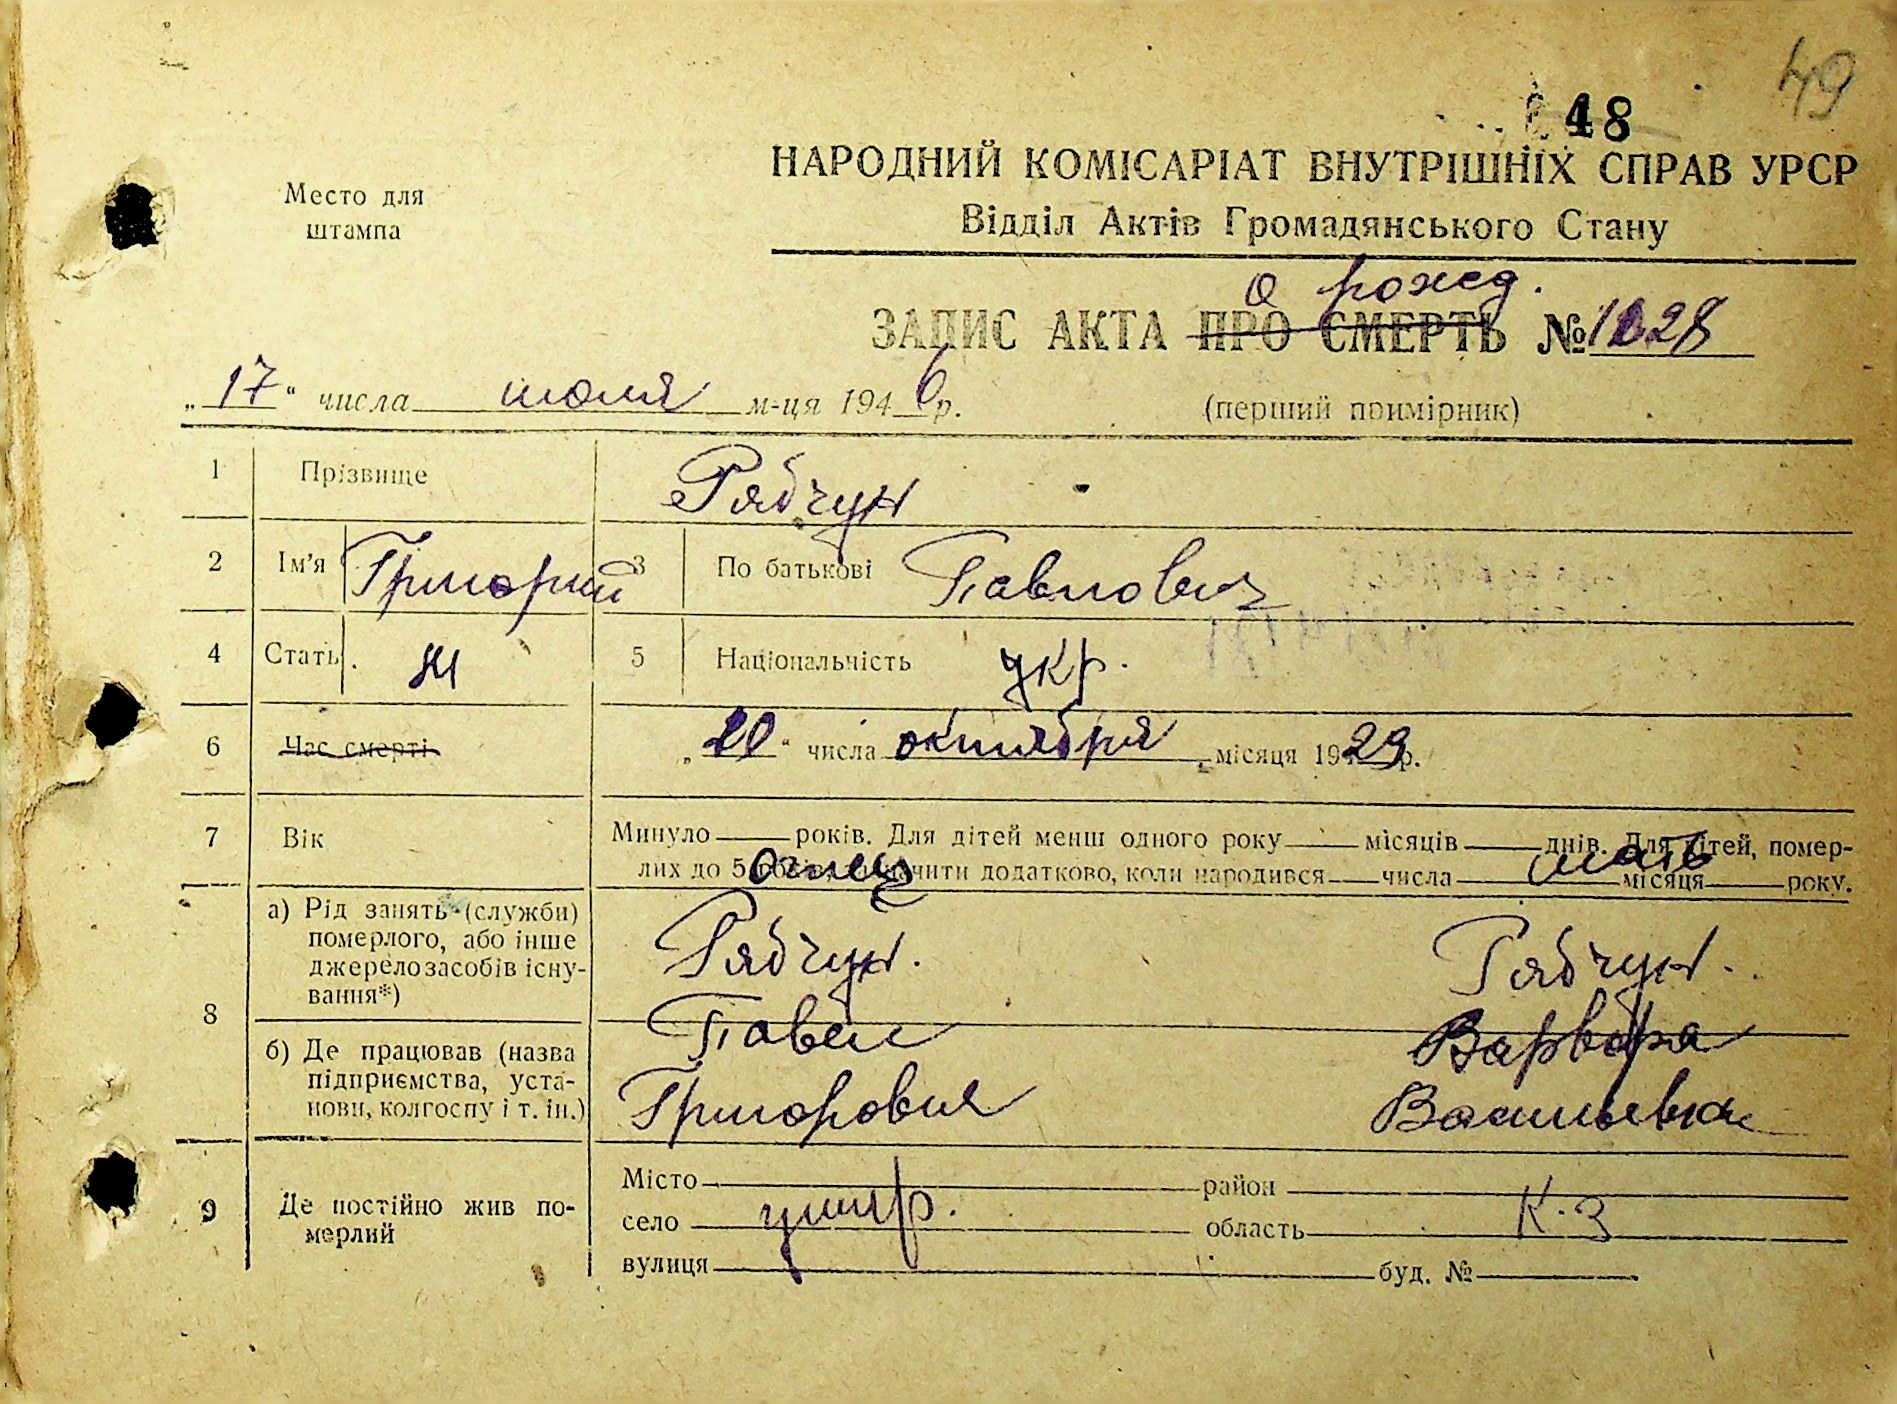 49
48
Место для
штампа
НАРОДНИЙ КОМІСАРІАТ ВНУТРІШНІХ СПРАВ УРСР
Відділ Актів Громадянського Стану
о рожд.
ЗАПИС АКТА ПРО СМЕРТЬ № 1028
„17“ числа июля м-ця 1946 р. (перший примірник)
1 Прізвище Рябчун
2 Ім’я Григорий 3 По батькові Павлович
4 Стать М 5 Національність укр.
6 Час смерті „20“ числа октября місяця 1929 р.
7 Вік Минуло років. Для дітей менш одного року місяців днів. Для дітей, помер-
лих до 5 років, зазначити додатково, коли народився числа місяця року.
отец мать
8 а) Рід занять (служби)
померлого, або інше
джерело засобів існу-
вання*)
Рябчун. Рябчун.
Павел Варвара
б) Де працював (назва
підприємства, уста-
нови, колгоспу і т. ін.)
Григорович Васильевна
9 Де постійно жив по-
мерлий
Місто район
село область К-З
вулиця буд. №